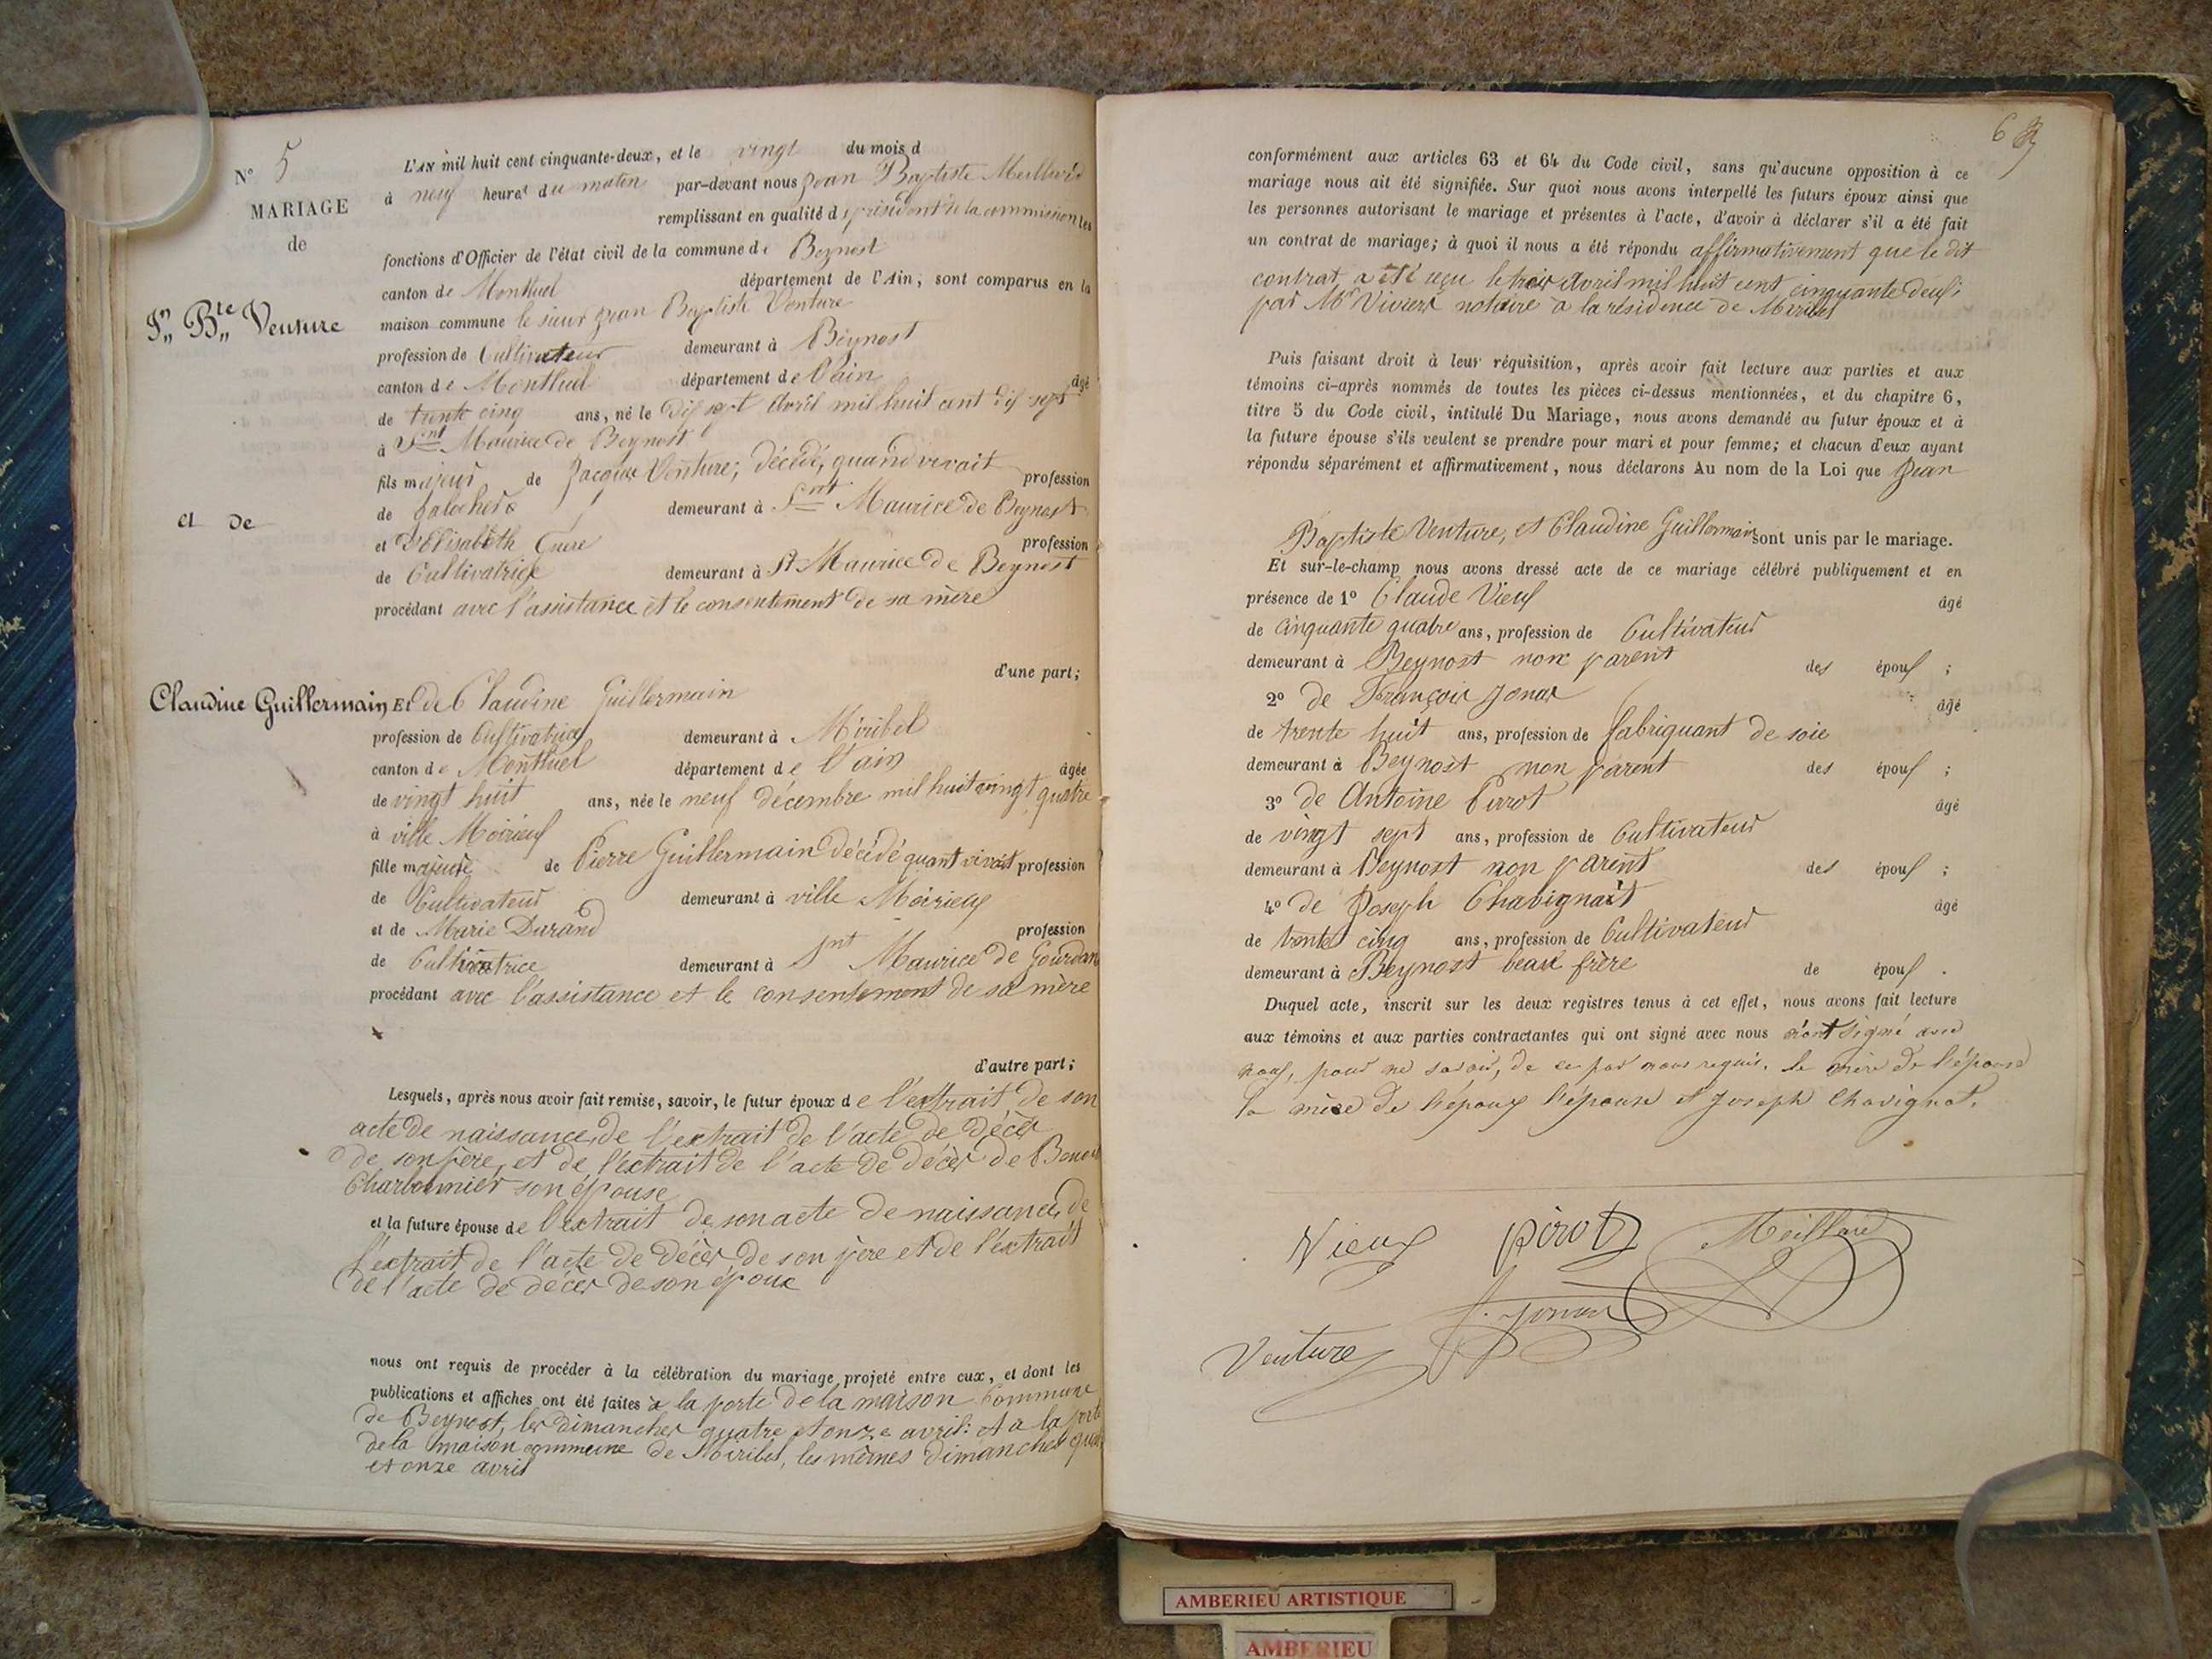 N° 5
MARIAGE
de
Jn Bte Venture
et de
Claudine Guillermain
L'AN mil huit cent cinquante-deux, et le vingt du mois d
à neuf heures du matin par-devant nous Jean Baptiste Meilland
remplissant en qualité de président de la commission les
fonctions d'Officier de l'état civil de la commune de Beynost
canton de Montluel département de l'Ain, sont comparus en la
maison commune le sieur Jean Baptiste Venture
profession de Cultivateur demeurant à Beynost
canton de Montluel département de l'ain âgé
de trente cinq ans, né le dix sept avril mil huit cent dix sept
à Snt Maurice de Beynost
fils majeur de Jacques Venture, décédé, quand vivait profession
de demeurant à Snt Maurice de Beynost
et d'Elisabeth profession
de Cultivatrice demeurant à St Maurice de Beynost
procédant avec l'assistance et le consentement de sa mère
d'une part;
Et de Claudine Guillermain
profession de Cultivatrice demeurant à Miribel
canton de Montluel département de l'ain âgée
de vingt huit ans, née le neuf décembre mil huit vingt quatre
à ville Moirieux
fille majeure de Pierre Guillermain décédé quant vivait profession
de Cultivateur demeurant à ville Moirieux
et de Marie Durand profession
de Cultivatrice demeurant à Snt Maurice de Gourdan
procédant avec l'assistance et le consentement de sa mère
d'autre part;
Lesquels, après nous avoir fait remise, savoir, le futur époux de l'extrait de son
acte de naissance, de l'extrait de l'acte de décès
de son père, et de l'extrait de l'acte de décès de
Charbonnier son épouse
et la future épouse de l'extrait de son acte de naissance, de
l'extrait de l'acte de décès, de son père et de l'extrait
de l'acte de décès de son époux
nous ont requis de procéder à la célébration du mariage projeté entre eux, et dont les
publications et affiches ont été faites à la porte de la maison Commune
de Beynost, les dimanches quatre et onze avril: et a la porte
de la maison commune de Miribel, les mêmes dimanches
et onze avril
conformément aux articles 63 et 64 du Code civil, sans qu'aucune opposition à ce
mariage nous ait été signifiée. Sur quoi nous avons interpellé les futurs époux ainsi que
les personnes autorisant le mariage et présentes à l'acte, d'avoir à déclarer s'il a été fait
un contrat de mariage; à quoi il nous a été répondu affirmativement que le dit
contrat a été reçu le trois avril mil huit cent cinquante deux
par Me notaire à la résidence de Miribel
Puis faisant droit à leur réquisition, après avoir fait lecture aux parties et aux
témoins ci-après nommés de toutes les pièces ci-dessus mentionnées, et du chapitre 6,
titre 5 du Code civil, intitulé Du Mariage, nous avons demandé au futur époux et à
la future épouse s'ils veulent se prendre pour mari et pour femme; et chacun d'eux ayant
répondu séparément et affirmativement, nous déclarons Au nom de la Loi que Jean
Baptiste Venture, et Claudine Guillermain sont unis par le mariage.
Et sur-le-champ nous avons dressé acte de ce mariage célébré publiquement et en
présence de 1° Claude Vieux âgé
de cinquante quatre ans, profession de Cultivateur
demeurant à Beynost non parent des époux ;
2° de François Jonas âgé
de trente huit ans, profession de fabriquant de soie
demeurant à Beynost non parent des époux ;
3° de Antoine Pirrot âgé
de vingt sept ans, profession de Cultivateur
demeurant à Beynost non parent des époux ;
4° de Joseph Chabignait âgé
de trente cinq ans, profession de Cultivateur
demeurant à Beynost beau frère de époux .
Duquel acte, inscrit sur les deux registres tenus à cet effet, nous avons fait lecture
aux témoins et aux parties contractantes qui ont signé avec nous n'ont signé avec
nous, pour ne savoir, de ce par nous requis, la mère de l'épouse
la mère de l'époux l'épouse et Joseph Chavignat.
Vieux Pirot Meilland
f. Jonas
Venture
AMBERIEU ARTISTIQUE
AMBERIEU